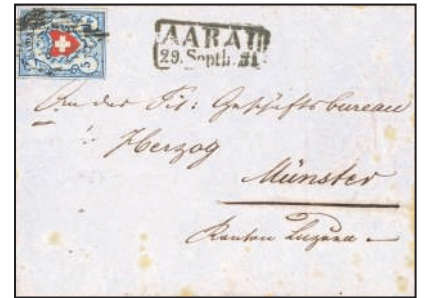 AARAU
29. Septb. 51
An das Tit: Geschäftsbureau
Herzog
Münster
Kanton Luzern